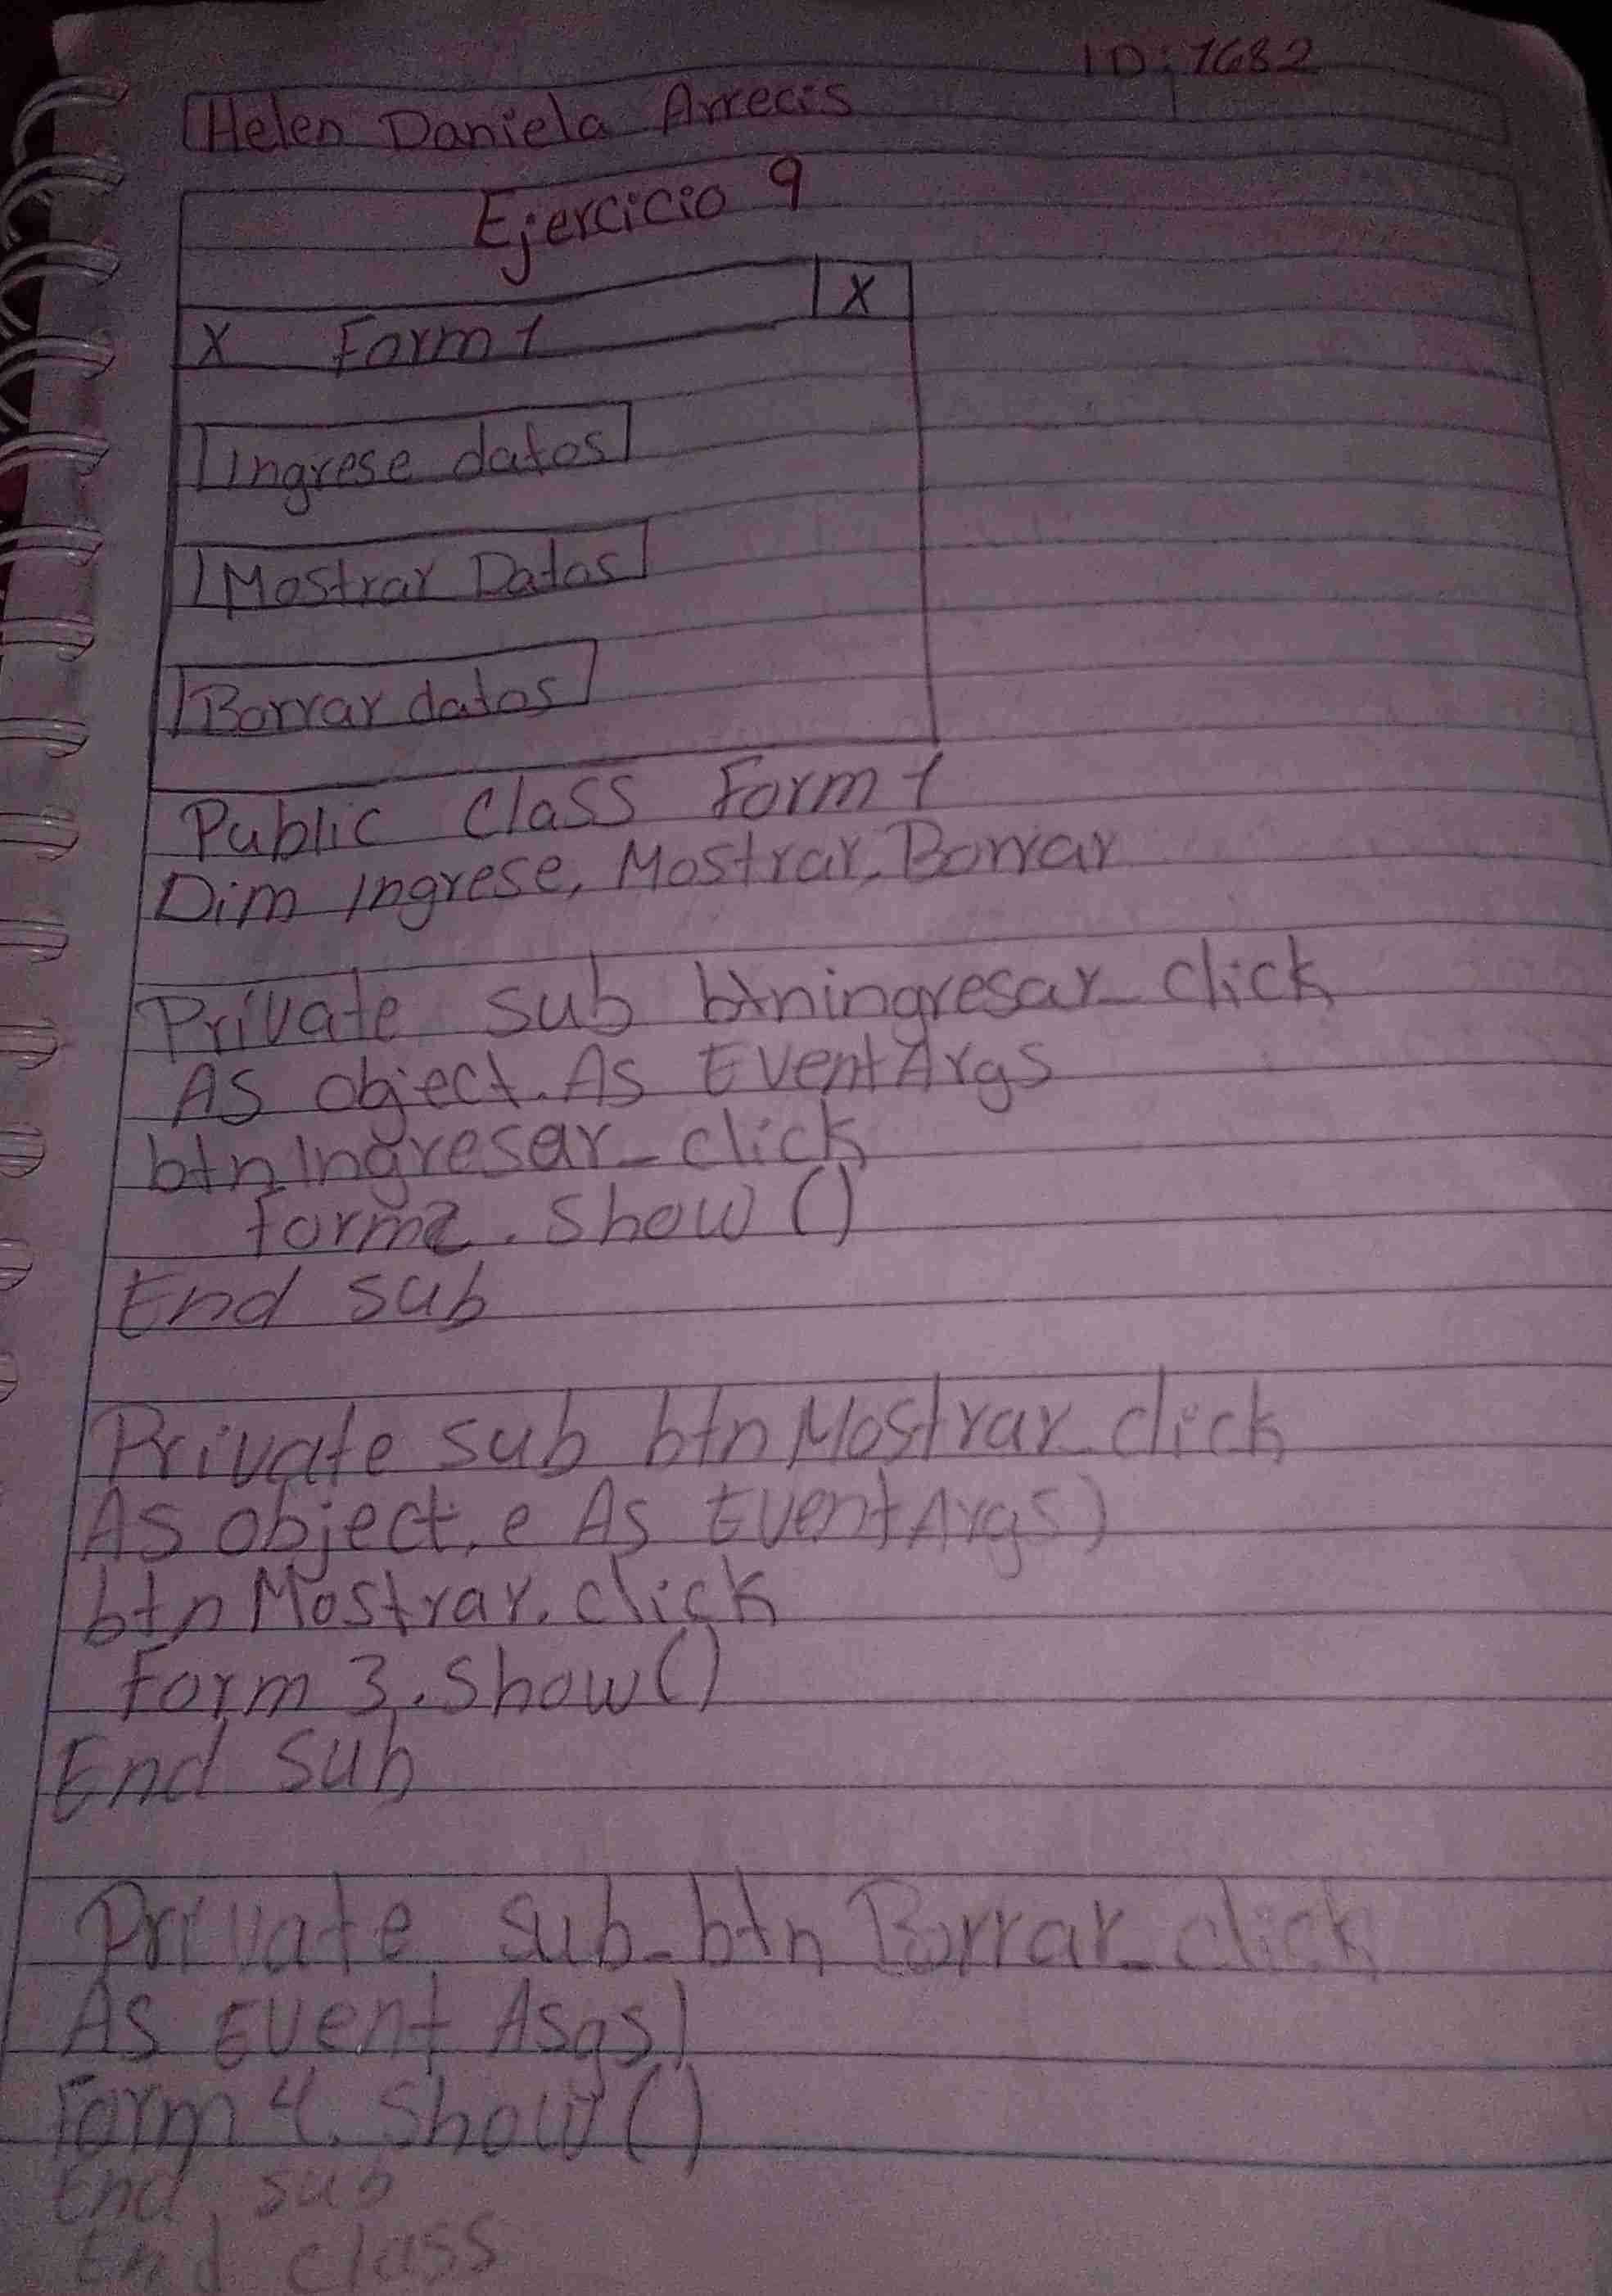 ID: 1682
Helen Daniela Arrecis
Ejercicio 9
X
X Form 1
Ingrese datos
Mostrar Datos
Borrar datos
Public Class Form 1
Dim Ingrese, Mostrar, Borrar
Private sub btningresar_click
As object. As EventArgs
btnIngresar_click
form2. Show ()
End sub
Private sub btn Mostrar_click
As object, e As EventArgs)
btn Mostrar. click
Form 3. Show ()
End sub
Private sub_btn Borrar_click
As Event Asgs)
Form 4. Show ()
End sub
End class